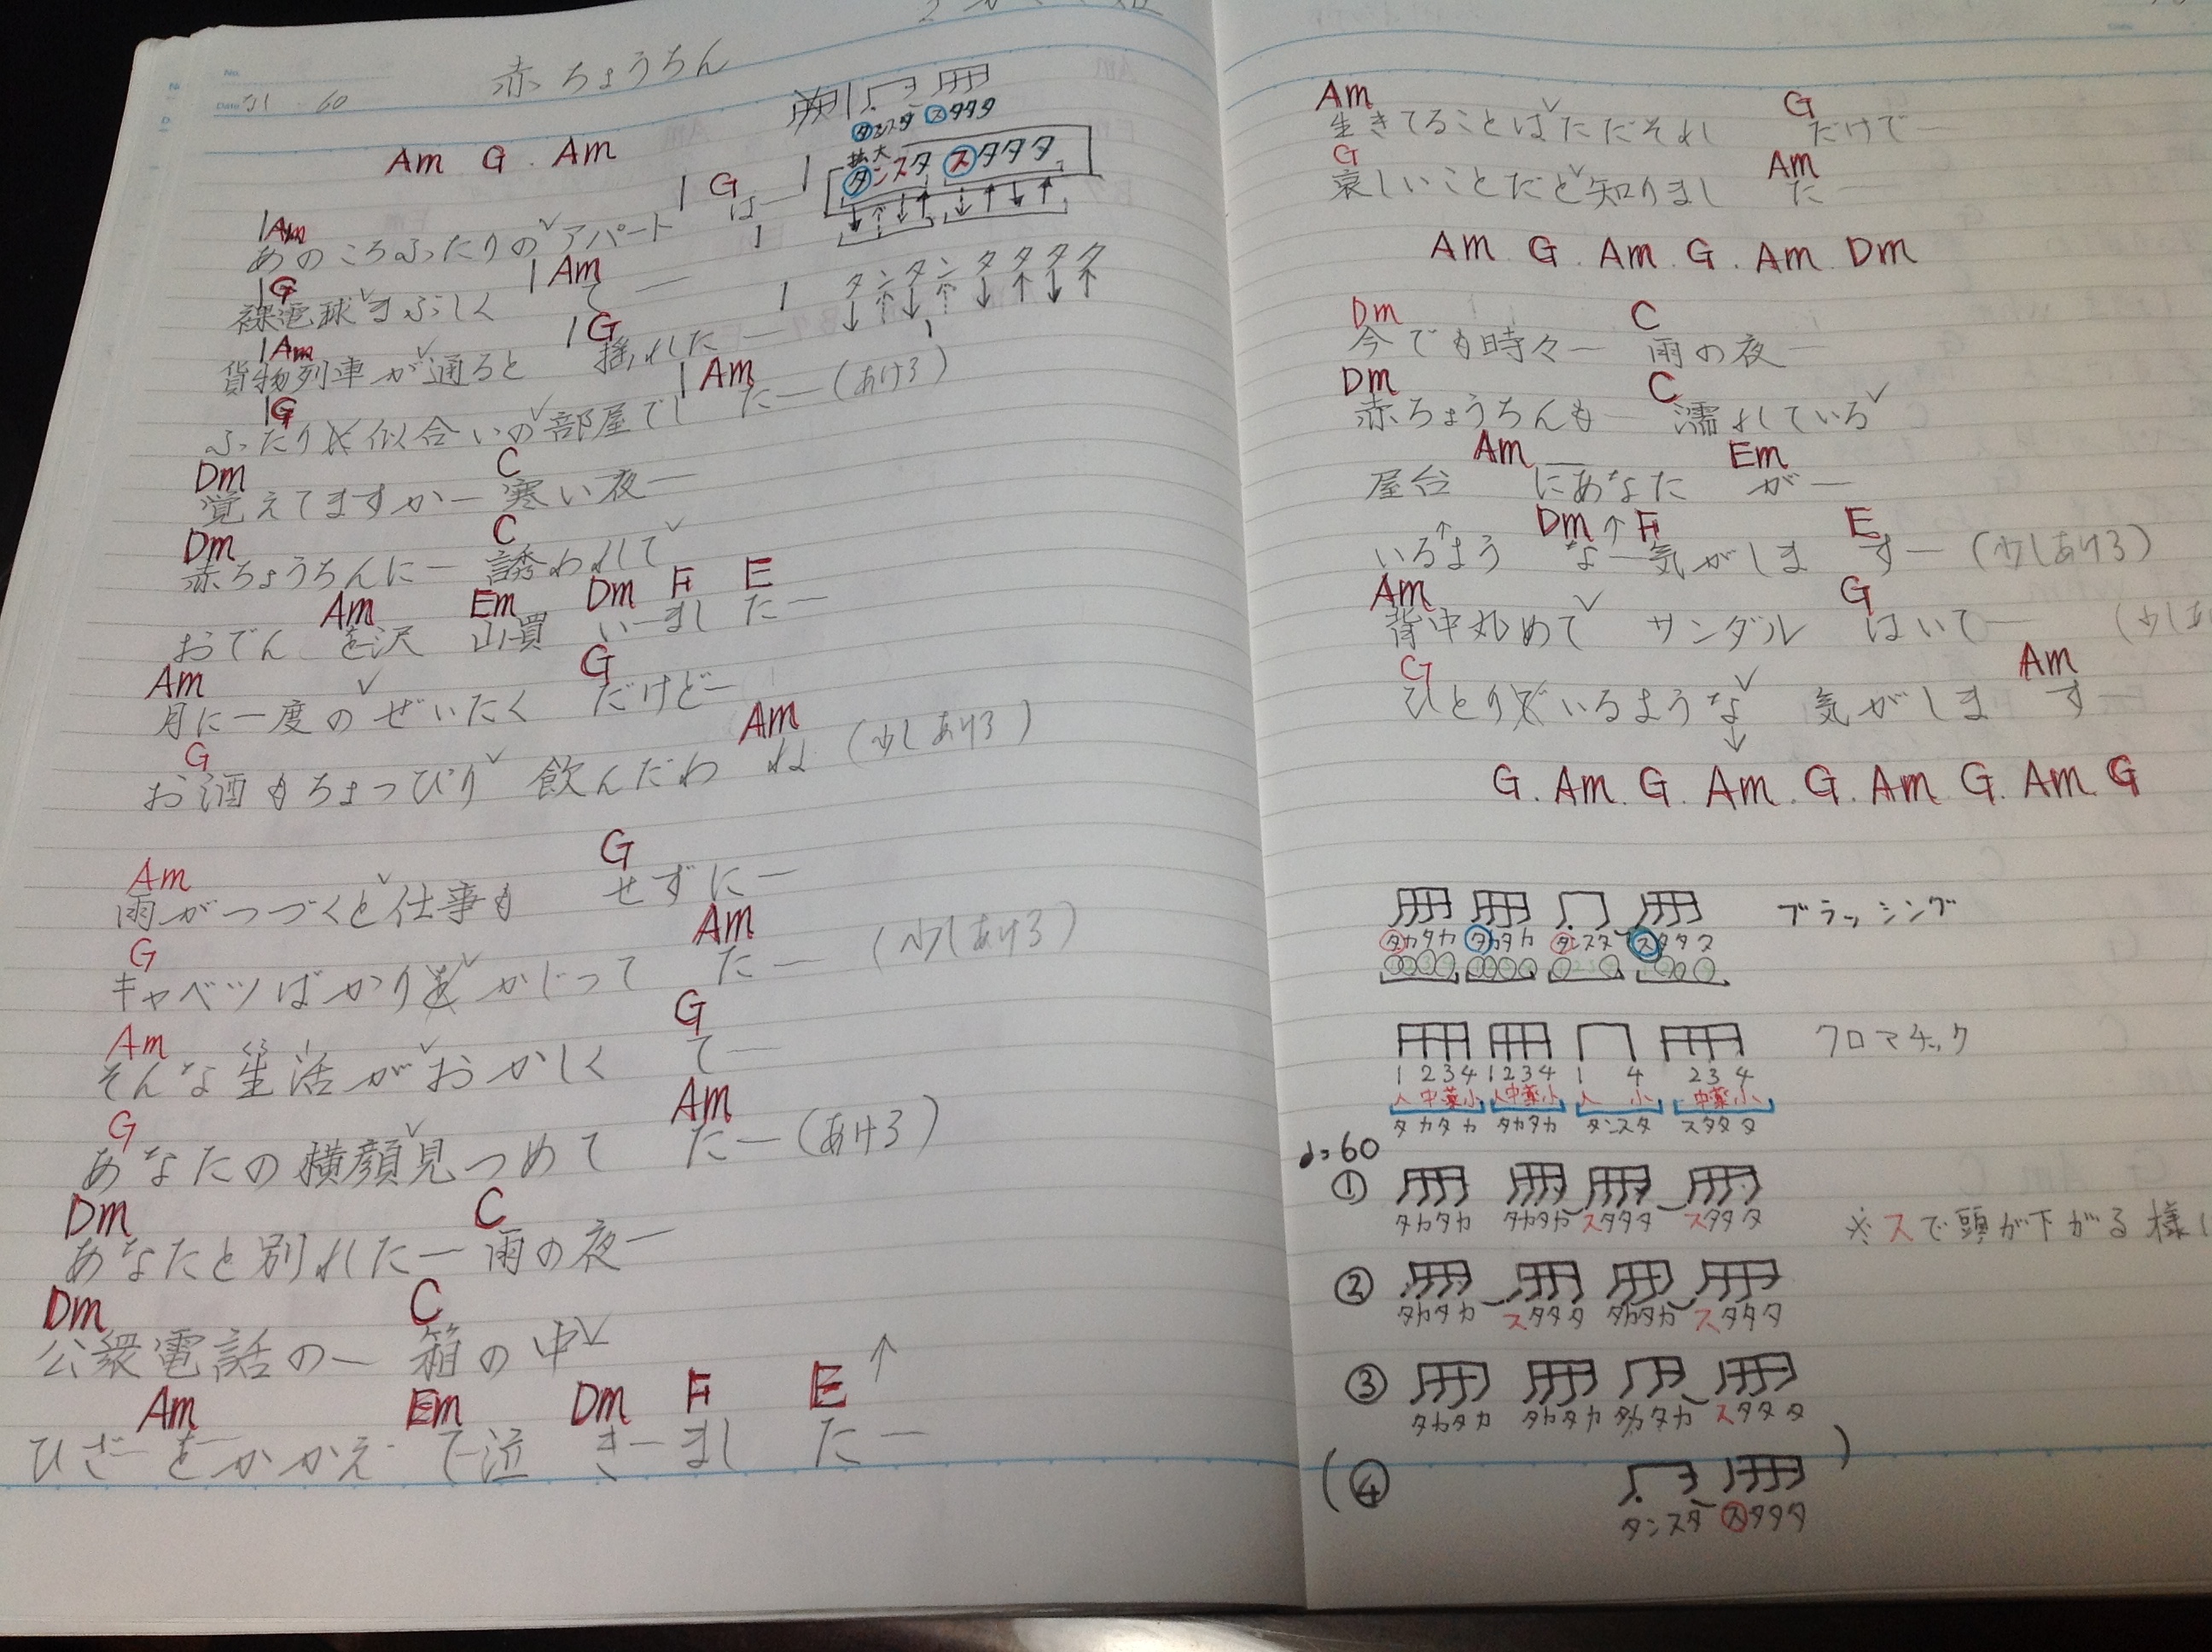 赤ちょうちん
No.
Date
60
Am G . Am
タンスタ スタタタ
拡大
タンスタ スタタタ
Am G
あのころふたりのアパート は—
G Am
裸電球まぶしく て—
タンタンタタタタ
Am G
貨物列車が通ると 揺れた—
G Am
ふたりに似合いの部屋でし た—(あける)
Dm C
覚えてますかー寒い夜—
Dm C
赤ちょうちんにー誘われて
Am Em Dm F E
おでん を沢 山買 いーまし たー
Am G
月に一度のぜいたく だけどー
G Am
お酒もちょっぴり飲んだわ ね(少しあける)
Am G
雨がつづくと仕事も せずにー
G Am
キャベツばかりをかじって たー(少しあける)
Am G
そんな生活がおかしく てー
G Am
あなたの横顔見つめて たー(あける)
Dm C
あなたと別れたー雨の夜ー
Dm C
公衆電話のー 箱の中
Am Em Dm F E
ひざーをかかえ て泣 きーまし たー
Am G
生きてることはただそれ だけでー
G Am
哀しいことだと知りまし たー
Am G . Am . G . Am Dm
Dm C
今でも時々ー 雨の夜ー
Dm C
赤ちょうちんもー 濡れている
Am Em
屋台 にあなた がー
Dm F E
いるよう なー気がしま すー(少しあける)
Am G
背中丸めて サンダル はいてー
G Am
ひとりでいるような 気がしま す
G . Am . G . Am . G . Am G . Am G
ブラッシング
タカタカ タカタカ タンスタ スタタタ
クロマチック
1 2 3 4 1 2 3 4 1 4 2 3 4
人 中薬小 人中薬小 人 小 中薬小
タカタカ タカタカ タンスタ スタタタ
♩=60
①
タカタカ タカタカ スタタタ スタタタ
※スで頭が下がる様に
②
タカタカ スタタタ タカタカ スタタタ
③
タカタカ タカタカ タカタカ スタタタ
(④ )
タンスタ スタタタ